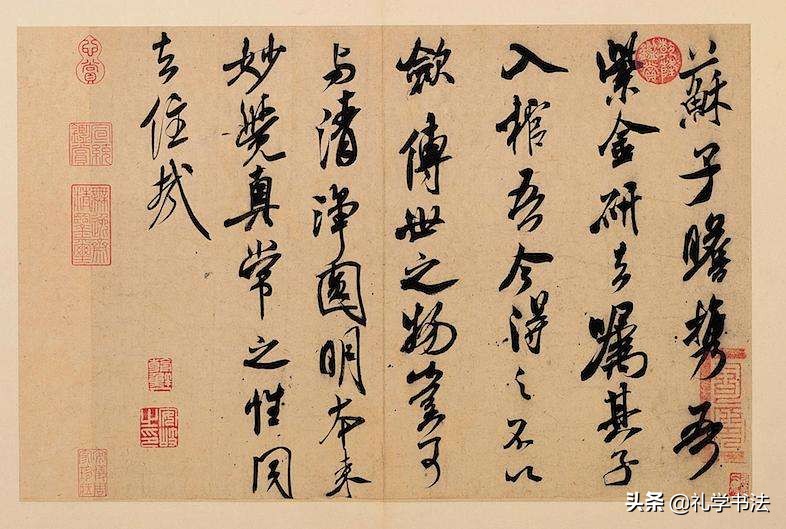 蘇子瞻攜吾
紫金研去囑其子
入棺吾今得之不以
斂傳世之物豈可
與清淨圓明本來
妙覺真常之性同
去住哉
头条 @礼学书法